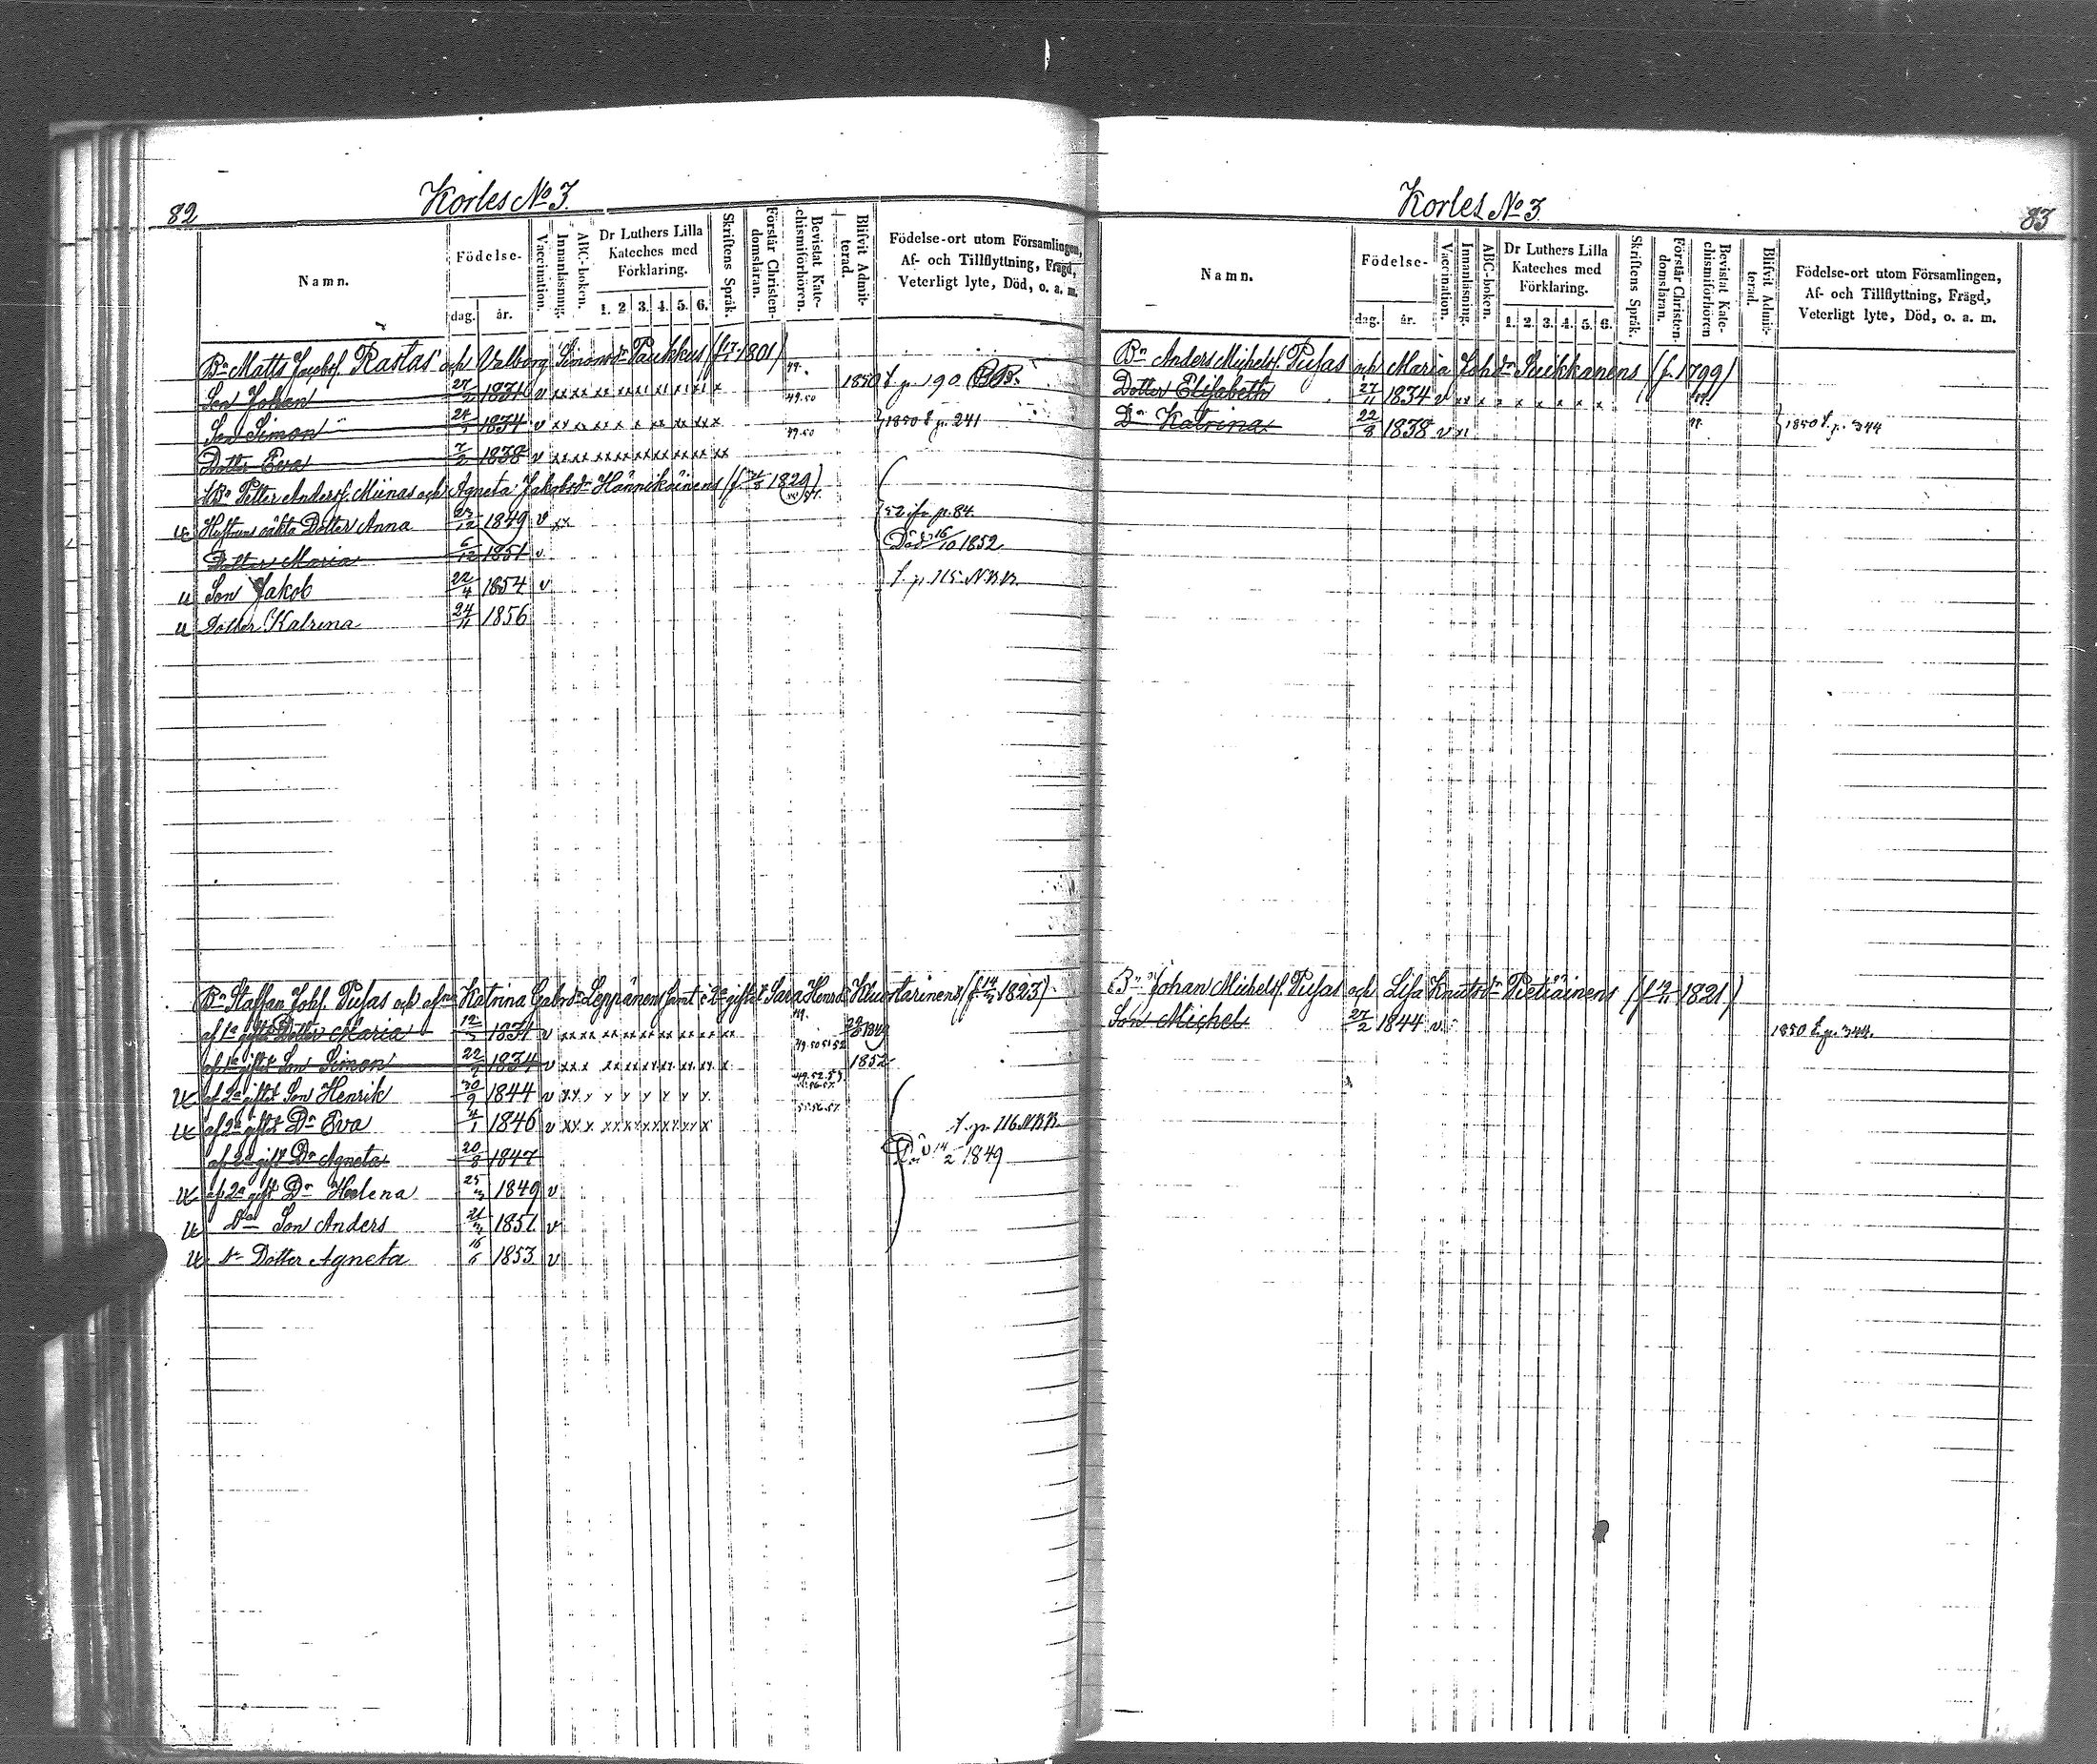 82
Korles No 3.
Namn.
Födelse-
dag.
år.
Vaccination.
Innanläsning.
ABC-boken.
Dr Luthers Lilla
Kateches med
Förklaring.
1. 2 3. 4. 5. 6.
Skriftens Språk.
Förstår Christen-
domsläran.
Bevistat Kate-
chismiförhören.
Blifvit Admit-
terad.
Födelse-ort utom Församlingen,
Af- och Tillflyttning, Frägd,
Veterligt lyte, Död, o. a. m.
Bn Matts Jacobs. Rastas och Valborg Simonsdr Paukkus (f 1801)
Son Johan 27/2 1831 v 1850 f. p. 190
Son Simon 1834 v 49.50 1850 f. p. 241
Dotter Eva 7/2 1838 v 49.50
Bn Petter Anders. Miinas och Agneta Jakobsdr Hännikäinens (f 1829)
Hustruns oäkta Dotter Anna 23/12 1849 v xx 52 ifr. p. 84.
Dotter Maria 6/12 1851 v. Död 16/10 1852.
u Son Jakob 22/4 1854 v f. p. 115 NBB.
u Dotter Katrina 24/11 1856
Bn Staffan Johs. Pusas och Katrina Gabrsdr Leppänens samt i 2a giftet Sara Henrsdr (f 1823)
af 1a giftet Dotter Maria 1831 v 1849
af 1a giftet Son Simon 1834 v 49 50 51 52 1852
af 2a giftet Son Henrik 30/9 1844 v
af 2a giftet Dr Eva 4/1 1846 v 55.56.57. f. p. 116 NBB.
af 2a gift Dr Agneta 20/8 1847 Död 14/2 1849
af 2a gift Dr Helena 25/3 1849 v
Do Son Anders 21/3 1851 v
Dr Dotter Agneta 16/6 1853 v
Korles No 3.
83
Namn.
Födelse-
dag.
år.
Vaccination.
Innanläsning.
ABC-boken.
Dr Luthers Lilla
Kateches med
Förklaring.
1. 2. 3. 4. 5. 6.
Skriftens Språk.
Förstår Christen-
domsläran.
Bevistat Kate-
chismiförhören
Blifvit Admit-
terad.
Födelse-ort utom Församlingen,
Af- och Tillflyttning, Frägd,
Veterligt lyte, Död, o. a. m.
Bn Anders Michels. Pusas och Maria Johsdr Suikkanens (f. 1799)
Dotter Elisabeth 27/11 1834 v
Dr Katrina 22/8 1838 v 1850 f. p. 344
Bn Johan Michels. Pusas och Lisa Knutsdr Pietiäinens (f 1821)
Son Michel 27/2 1844 v. 1850 f. p. 344.